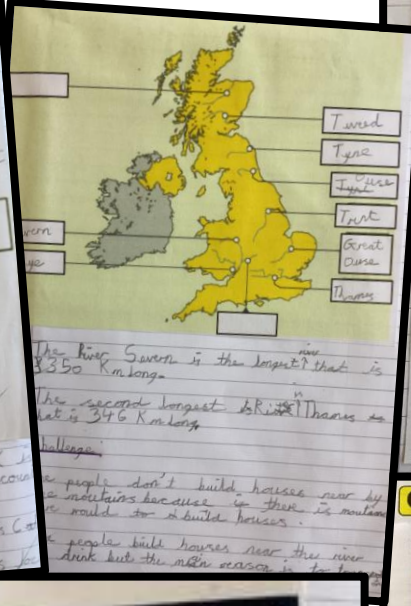 Tweed
Tyne
Ouse
Trent
Great
Ouse
Thames
vern
ye
The River Severn is the longest river that is
350 Km long.
The second longest is River Thames
at is 346 Km long,
hallenge:
e people don't build houses near by
e moutains because if there is moutain
e would to build houses.
e people build houses near the river
drink but the main reason is